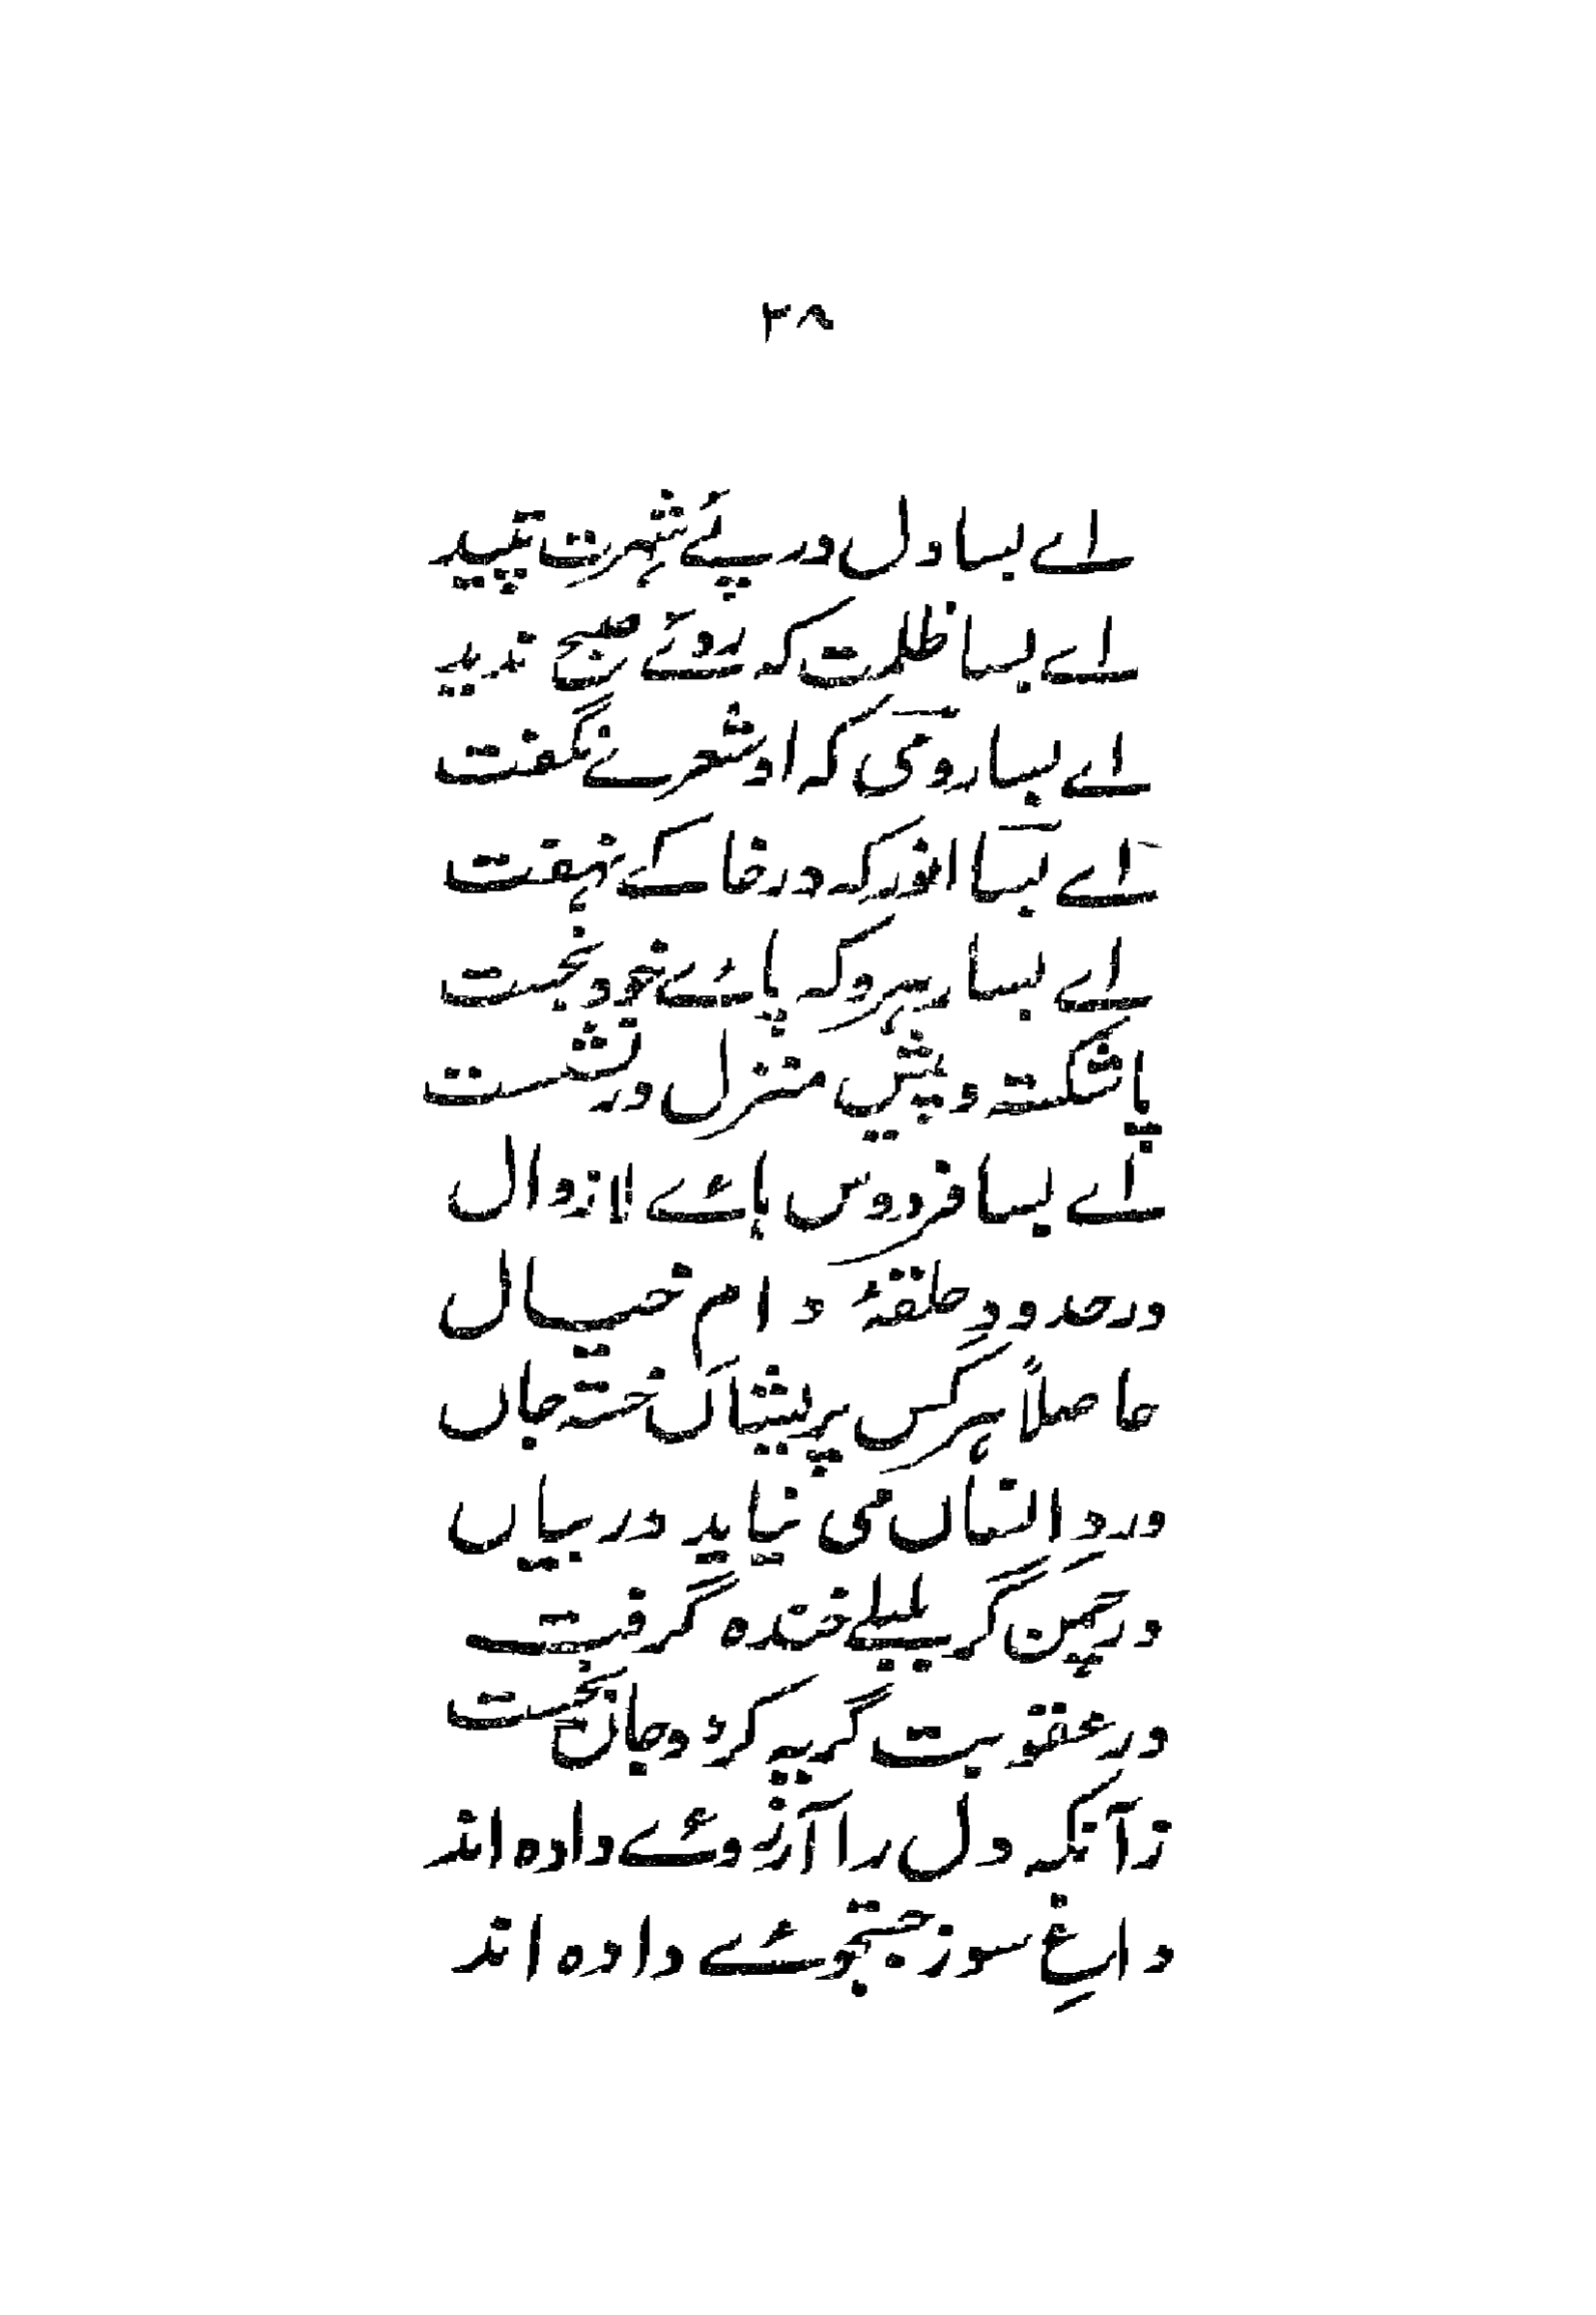 ۳۸
اے بسا دل در پئے شہرت تپید
اے بسا ظلمت کہ روئے صبح ندید
اے بسا رومی کہ او شعرے نگفت
اے بسا انور کہ در خاکے نہفت
اے بسا رہرو کہ پائے خود نجست
پا شکستہ و پیش منزل در نشست
اے بسا فردوس ہائے لازوال
در حدودِ حلقۂ دام خیال
حاصلاً ہر کس پریشاں خستہ جاں
دردِ انساں می نیاید در بیاں
در چمن گر بلبلے خندہ گرفت
در عقوبت گریہ کرد و جاں بخست
زآنکہ دل را آرزوئے دادہ اند
داغِ سوز جستجوئے دادہ اند